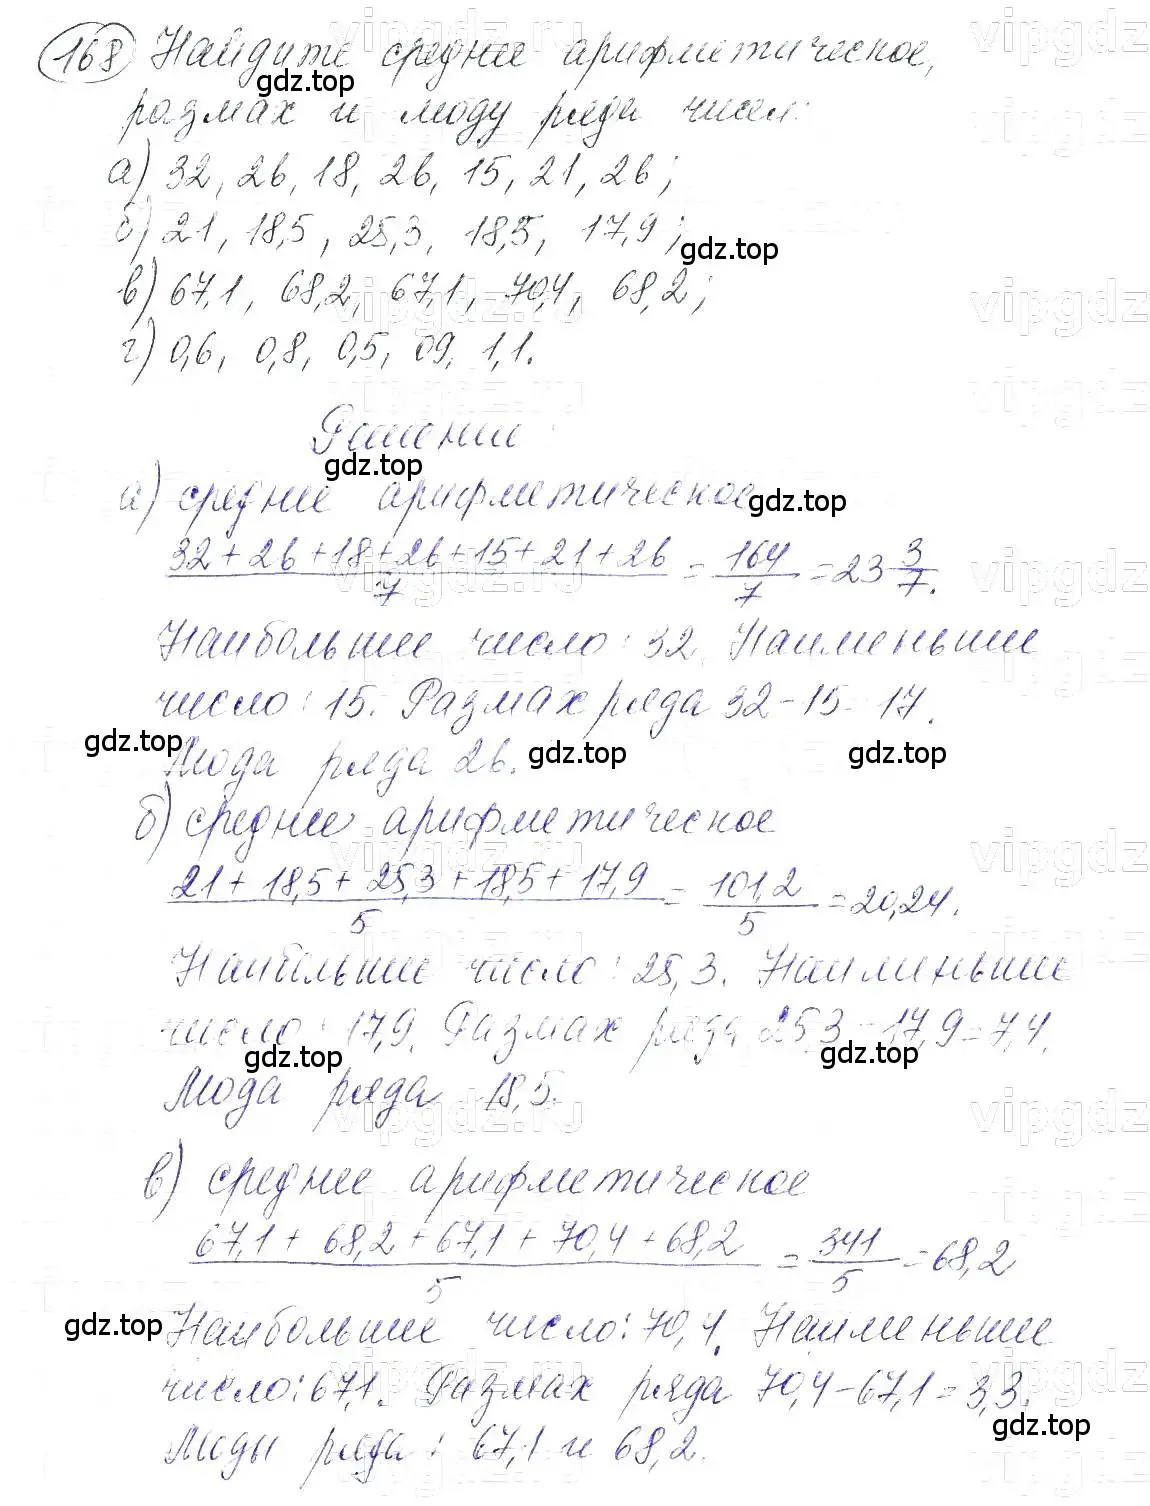 168 Найдите среднее арифметическое,
размах и моду ряда чисел:
а) 32, 26, 18, 26, 15, 21, 26;
б) 21, 18,5, 25,3, 18,5, 17,9;
в) 67,1, 68,2, 67,1, 70,4, 68,2;
г) 0,6, 0,8, 0,5, 09, 1,1.
Решение:
а) среднее арифметическое
32+26+18+26+15+21+26 / 7 = 164 / 7 = 23 3/7.
Наибольшее число: 32. Наименьшее
число: 15. Размах ряда 32-15=17.
Мода ряда 26.
б) среднее арифметическое
21+18,5+25,3+18,5+17,9 / 5 = 101,2 / 5 = 20,24.
Наибольшее число: 25,3. Наименьшее
число: 17,9. Размах ряда 25,3-17,9=7,4.
Мода ряда 18,5.
в) среднее арифметическое
67,1+68,2+67,1+70,4+68,2 / 5 = 341 / 5 = 68,2
Наибольшее число: 70,4. Наименьшее
число: 67,1. Размах ряда 70,4-67,1=3,3.
Моды ряда: 67,1 и 68,2.
gdz.top
vipgdz.ru